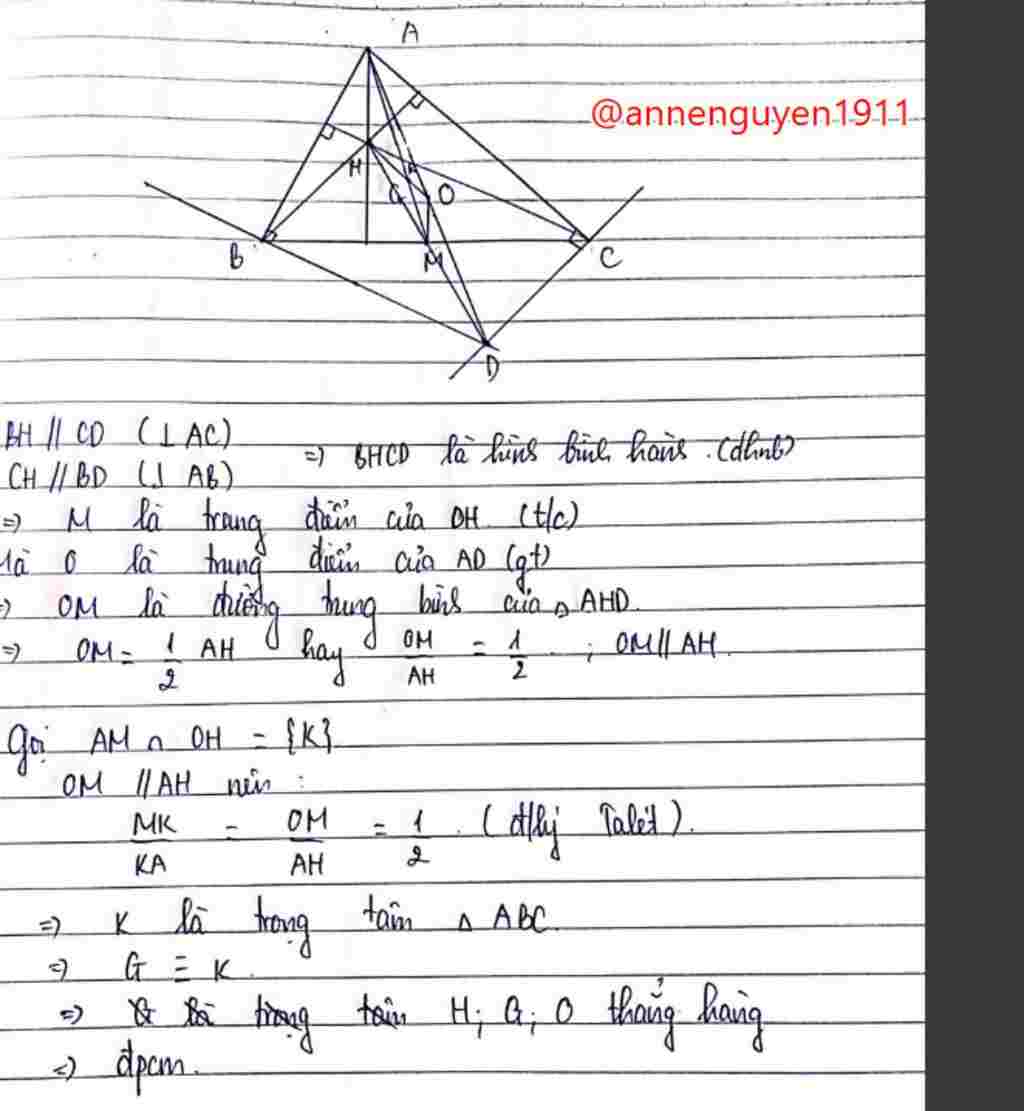 A
@annenguyen1911
H
K
G
O
B
M
C
D
BH // CD (⊥ AC)
CH // BD (⊥ AB)
=> BHCD là hình bình hành. (dhnb)
=> M là trung điểm của DH (t/c)
Mà O là trung điểm của AD (gt)
=> OM là đường trung bình của △ AHD.
=> OM = 1/2 AH hay OM/AH = 1/2 ; OM // AH.
Gọi AM ∩ OH = {K}
OM // AH nên :
MK/KA = OM/AH = 1/2 . (đ/lý Talét).
=> K là trọng tâm △ ABC.
=> G ≡ K.
=> G là trọng tâm H; G; O thẳng hàng
=> đpcm.